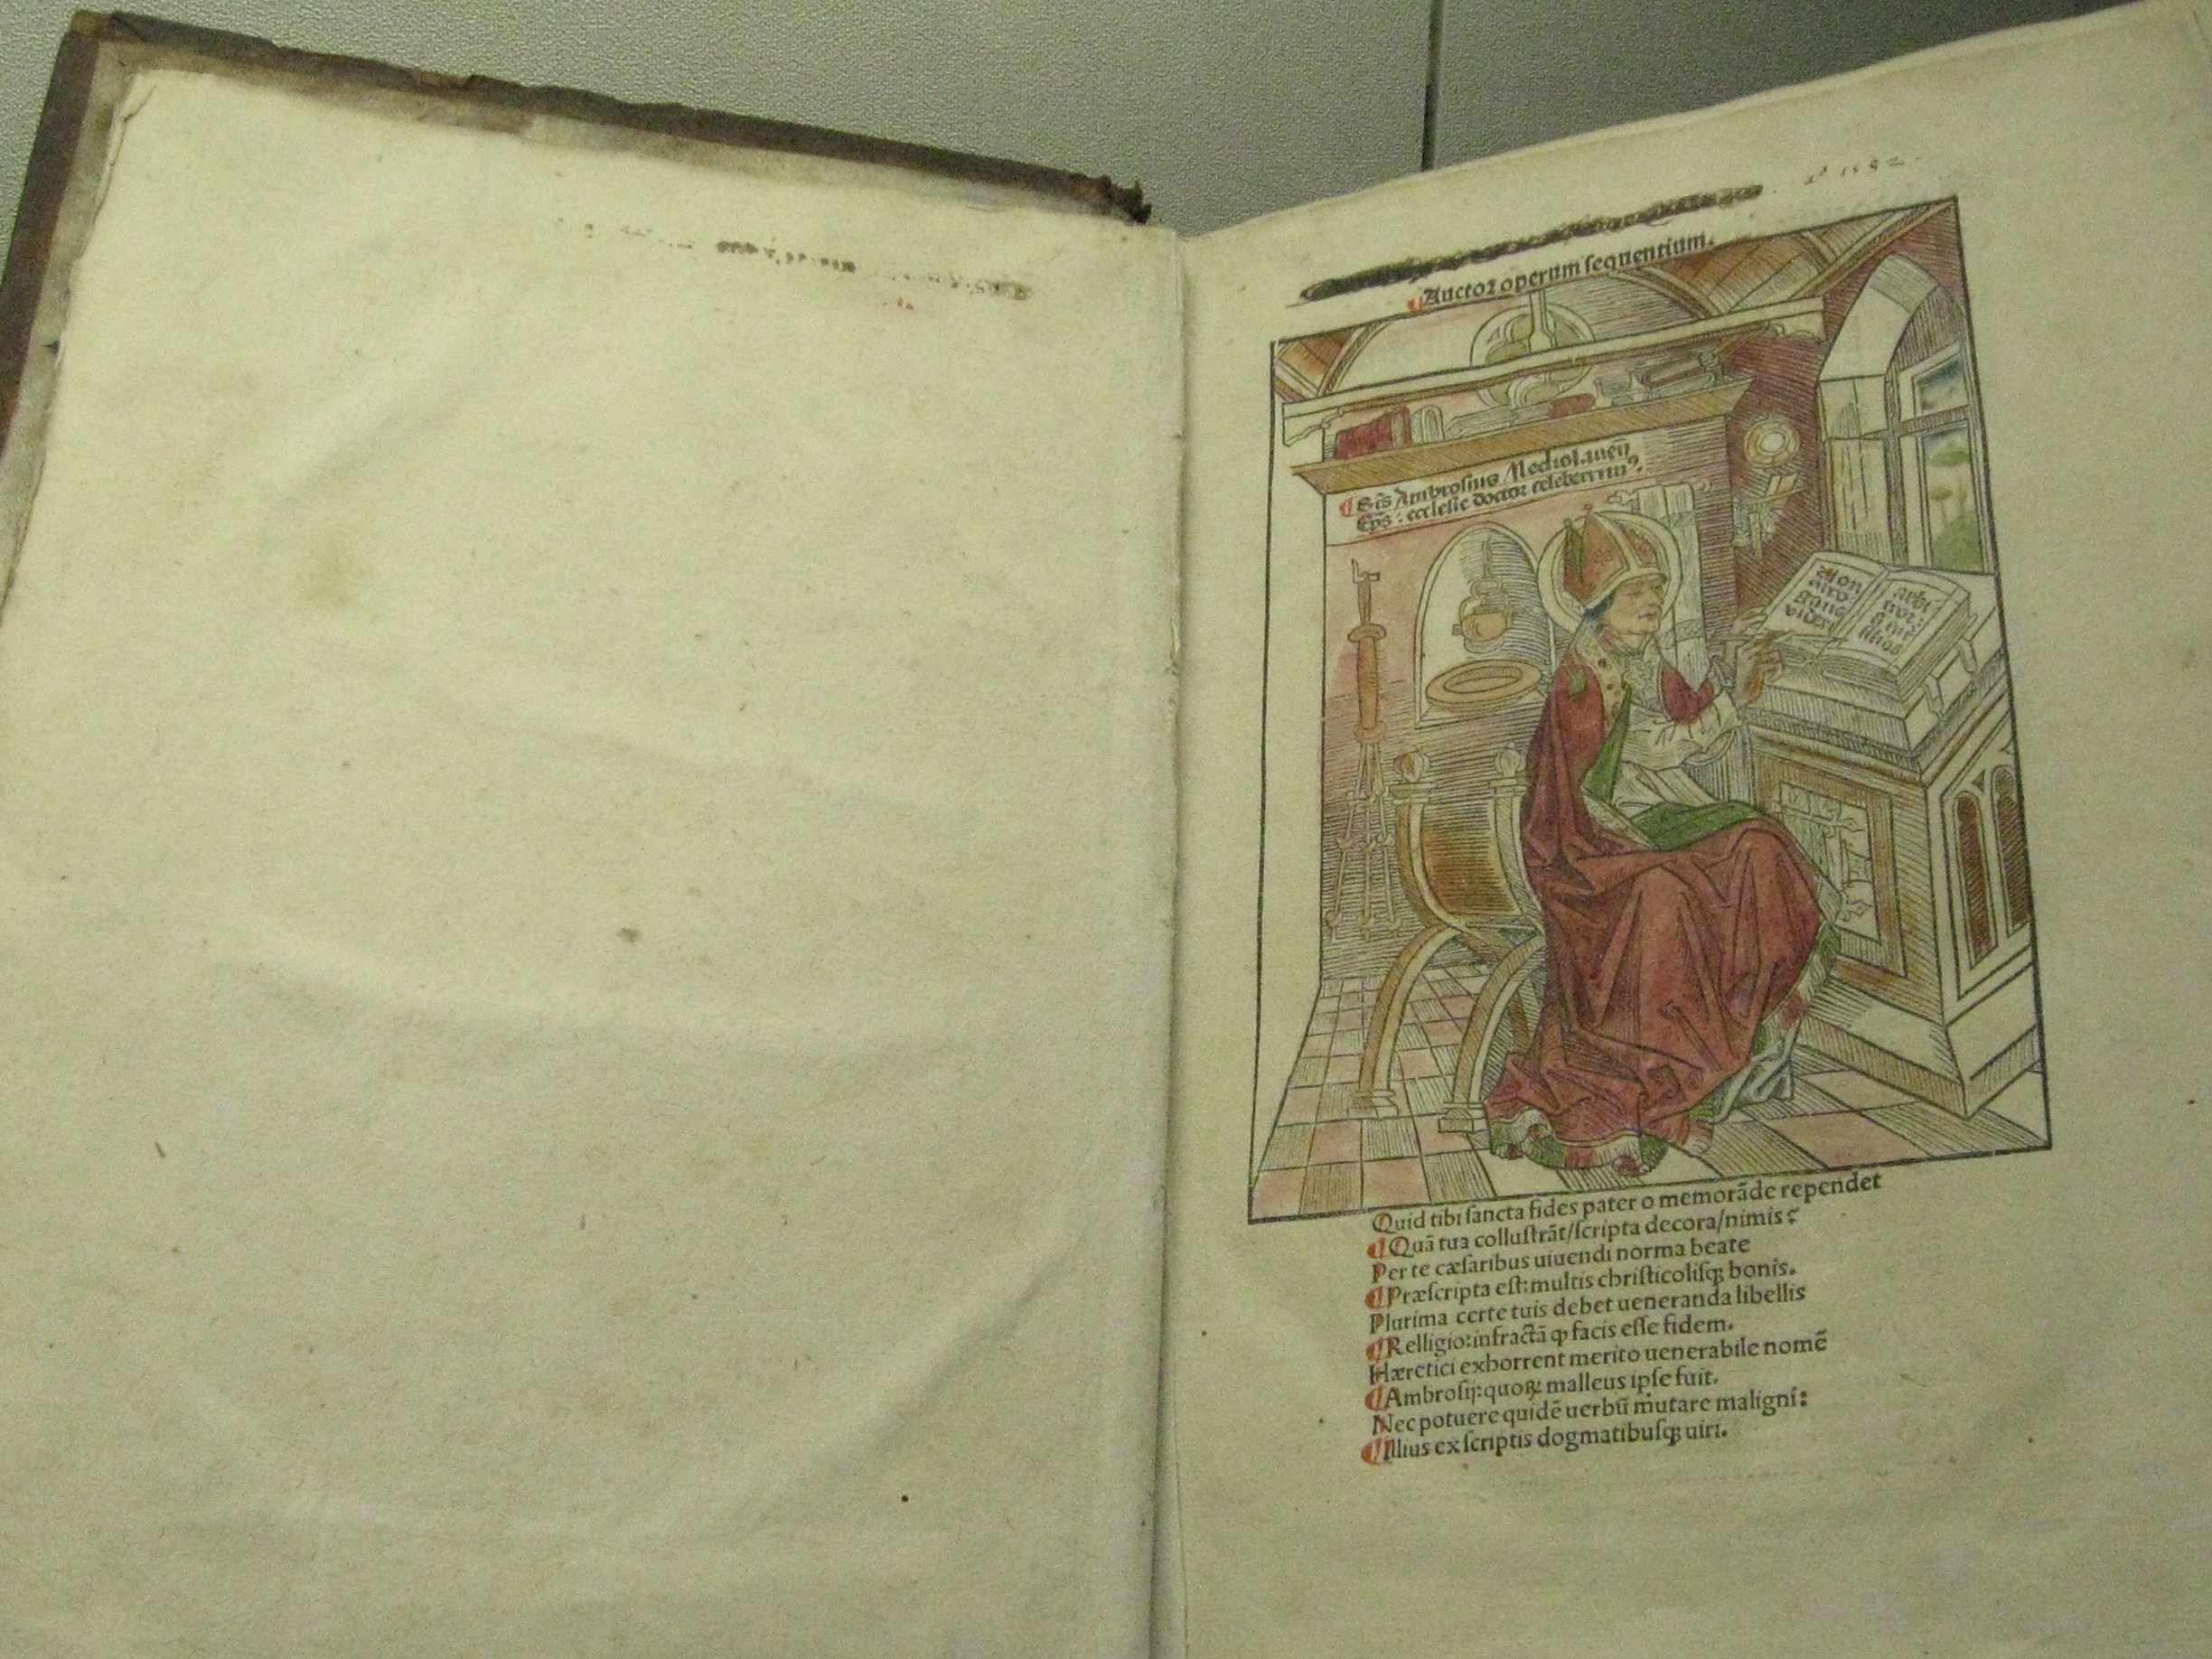 aº 1582.
¶Auctoꝛ operum ſequentium.
¶Sc̃s Ambroſius Mediol.
Ep̃s: eccleſie doctor celeberrimꝰ.
Non arbi
arro tror:
gant q̃ nõ
filios
Quid tibi ſancta fides pater o memorãde rependet
¶Quã tua colluſtrãt/ſcripta decora/nimis?
Per te cæſaribus uiuendi norma beate
¶Præſcripta eſt: multis chriſticoliſqꝫ bonis.
Plurima certe tuis debet ueneranda libellis
¶Relligio: infractã ꝙ facis eſſe fidem.
Hæretici exhorrent merito uenerabile nomẽ
¶Ambroſij: quoꝝ malleus ipſe fuit.
Nec potuere quidẽ uerbũ mutare maligni:
¶Illius ex ſcriptis dogmatibuſqꝫ uiri.